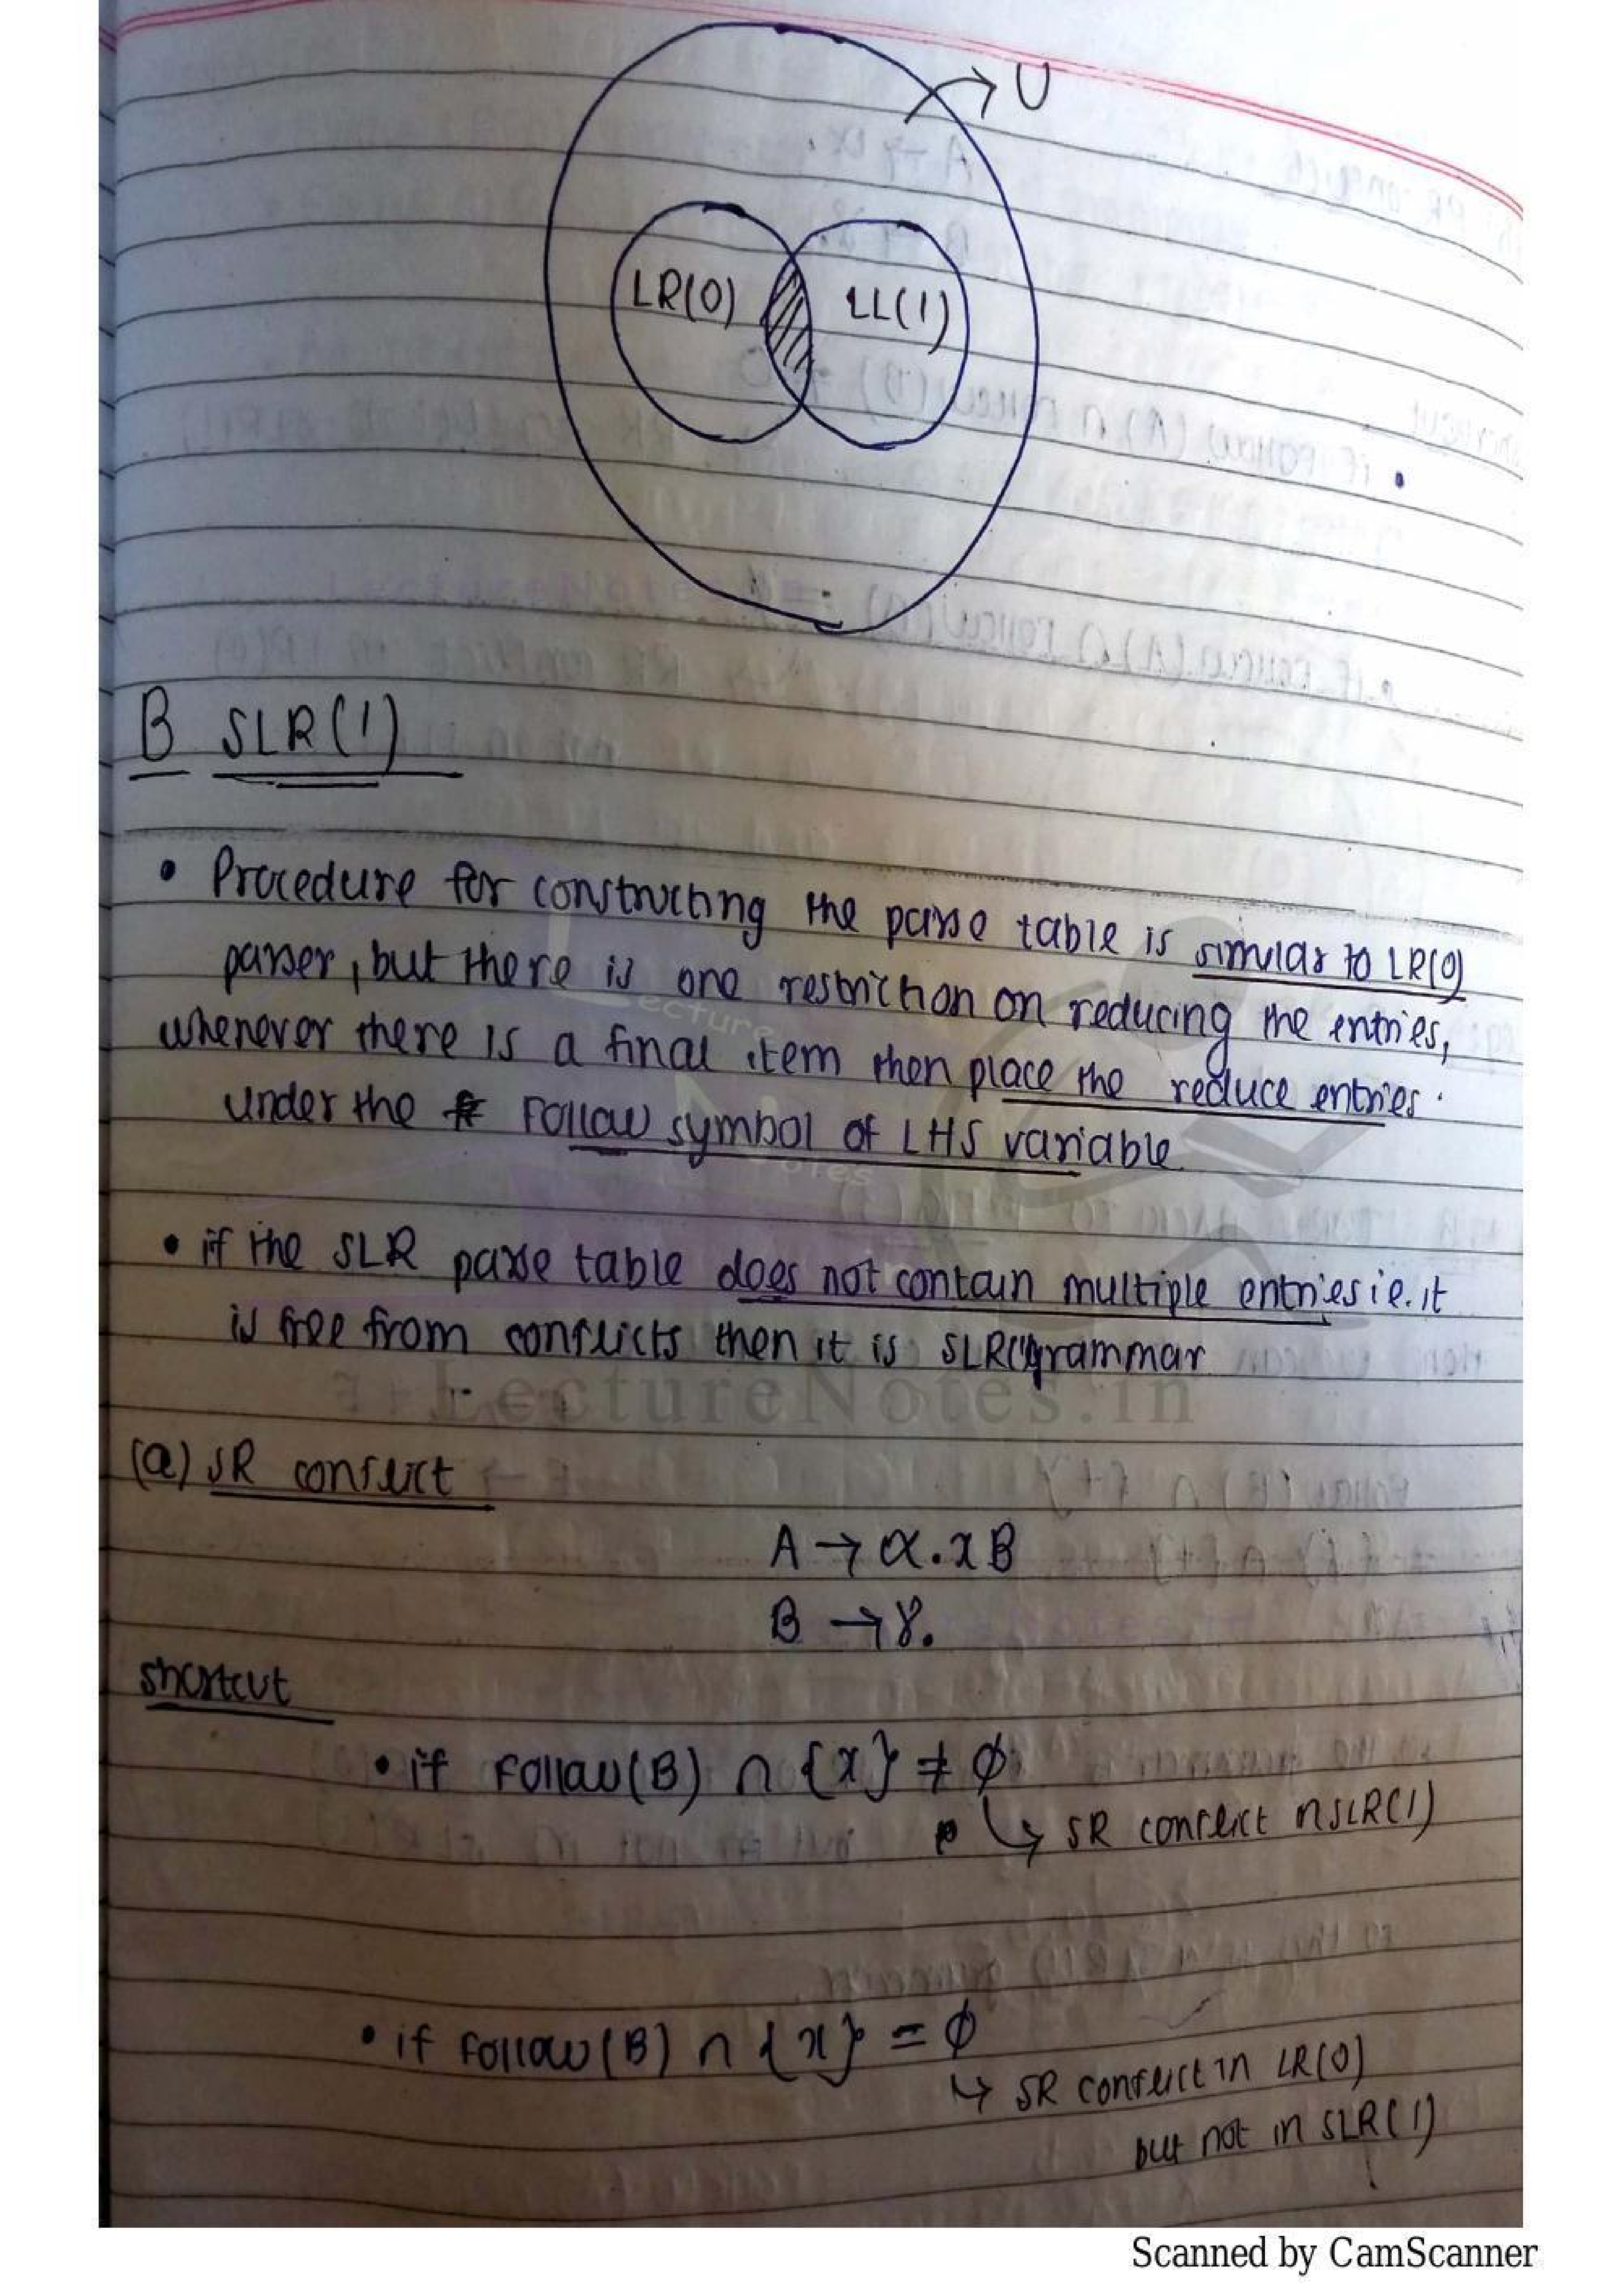 U
LR(0) LL(1)
B SLR(1)
• Procedure for constructing the parse table is similar to LR(0)
parser, but there is one restriction on reducing the entries,
whenever there is a final item then place the reduce entries.
under the Follow symbol of LHS variable
• if the SLR parse table does not contain multiple entries i.e. it
is free from conflicts then it is SLR(1) grammar
LectureNotes.in
(a) SR conflict
A → α.xB
B → γ.
shortcut
• if Follow(B) ∩ {x} ≠ ϕ
↳ SR conflict n SLR(1)
• if Follow(B) ∩ {x} = ϕ
↳ SR conflict in LR(0)
but not in SLR(1)
Scanned by CamScanner